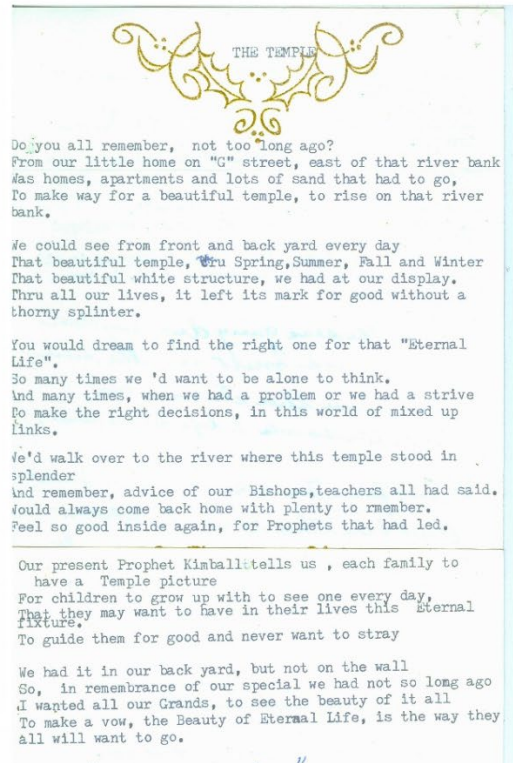 THE TEMPLE
Do you all remember, not too long ago?
From our little home on "G" street, east of that river bank
Was homes, apartments and lots of sand that had to go,
To make way for a beautiful temple, to rise on that river
bank.
We could see from front and back yard every day
That beautiful temple, Thru Spring,Summer, Fall and Winter
That beautiful white structure, we had at our display.
Thru all our lives, it left its mark for good without a
thorny splinter.
You would dream to find the right one for that "Eternal
Life".
So many times we 'd want to be alone to think.
And many times, when we had a problem or we had a strive
To make the right decisions, in this world of mixed up
links.
We'd walk over to the river where this temple stood in
splender
And remember, advice of our Bishops,teachers all had said.
Would always come back home with plenty to rmember.
Feel so good inside again, for Prophets that had led.
Our present Prophet Kimball tells us , each family to
have a Temple picture
For children to grow up with to see one every day,
That they may want to have in their lives this Eternal
fixture.
To guide them for good and never want to stray
We had it in our back yard, but not on the wall
So, in remembrance of our special we had not so long ago
I wanted all our Grands, to see the beauty of it all
To make a vow, the Beauty of Eternal Life, is the way they
all will want to go.